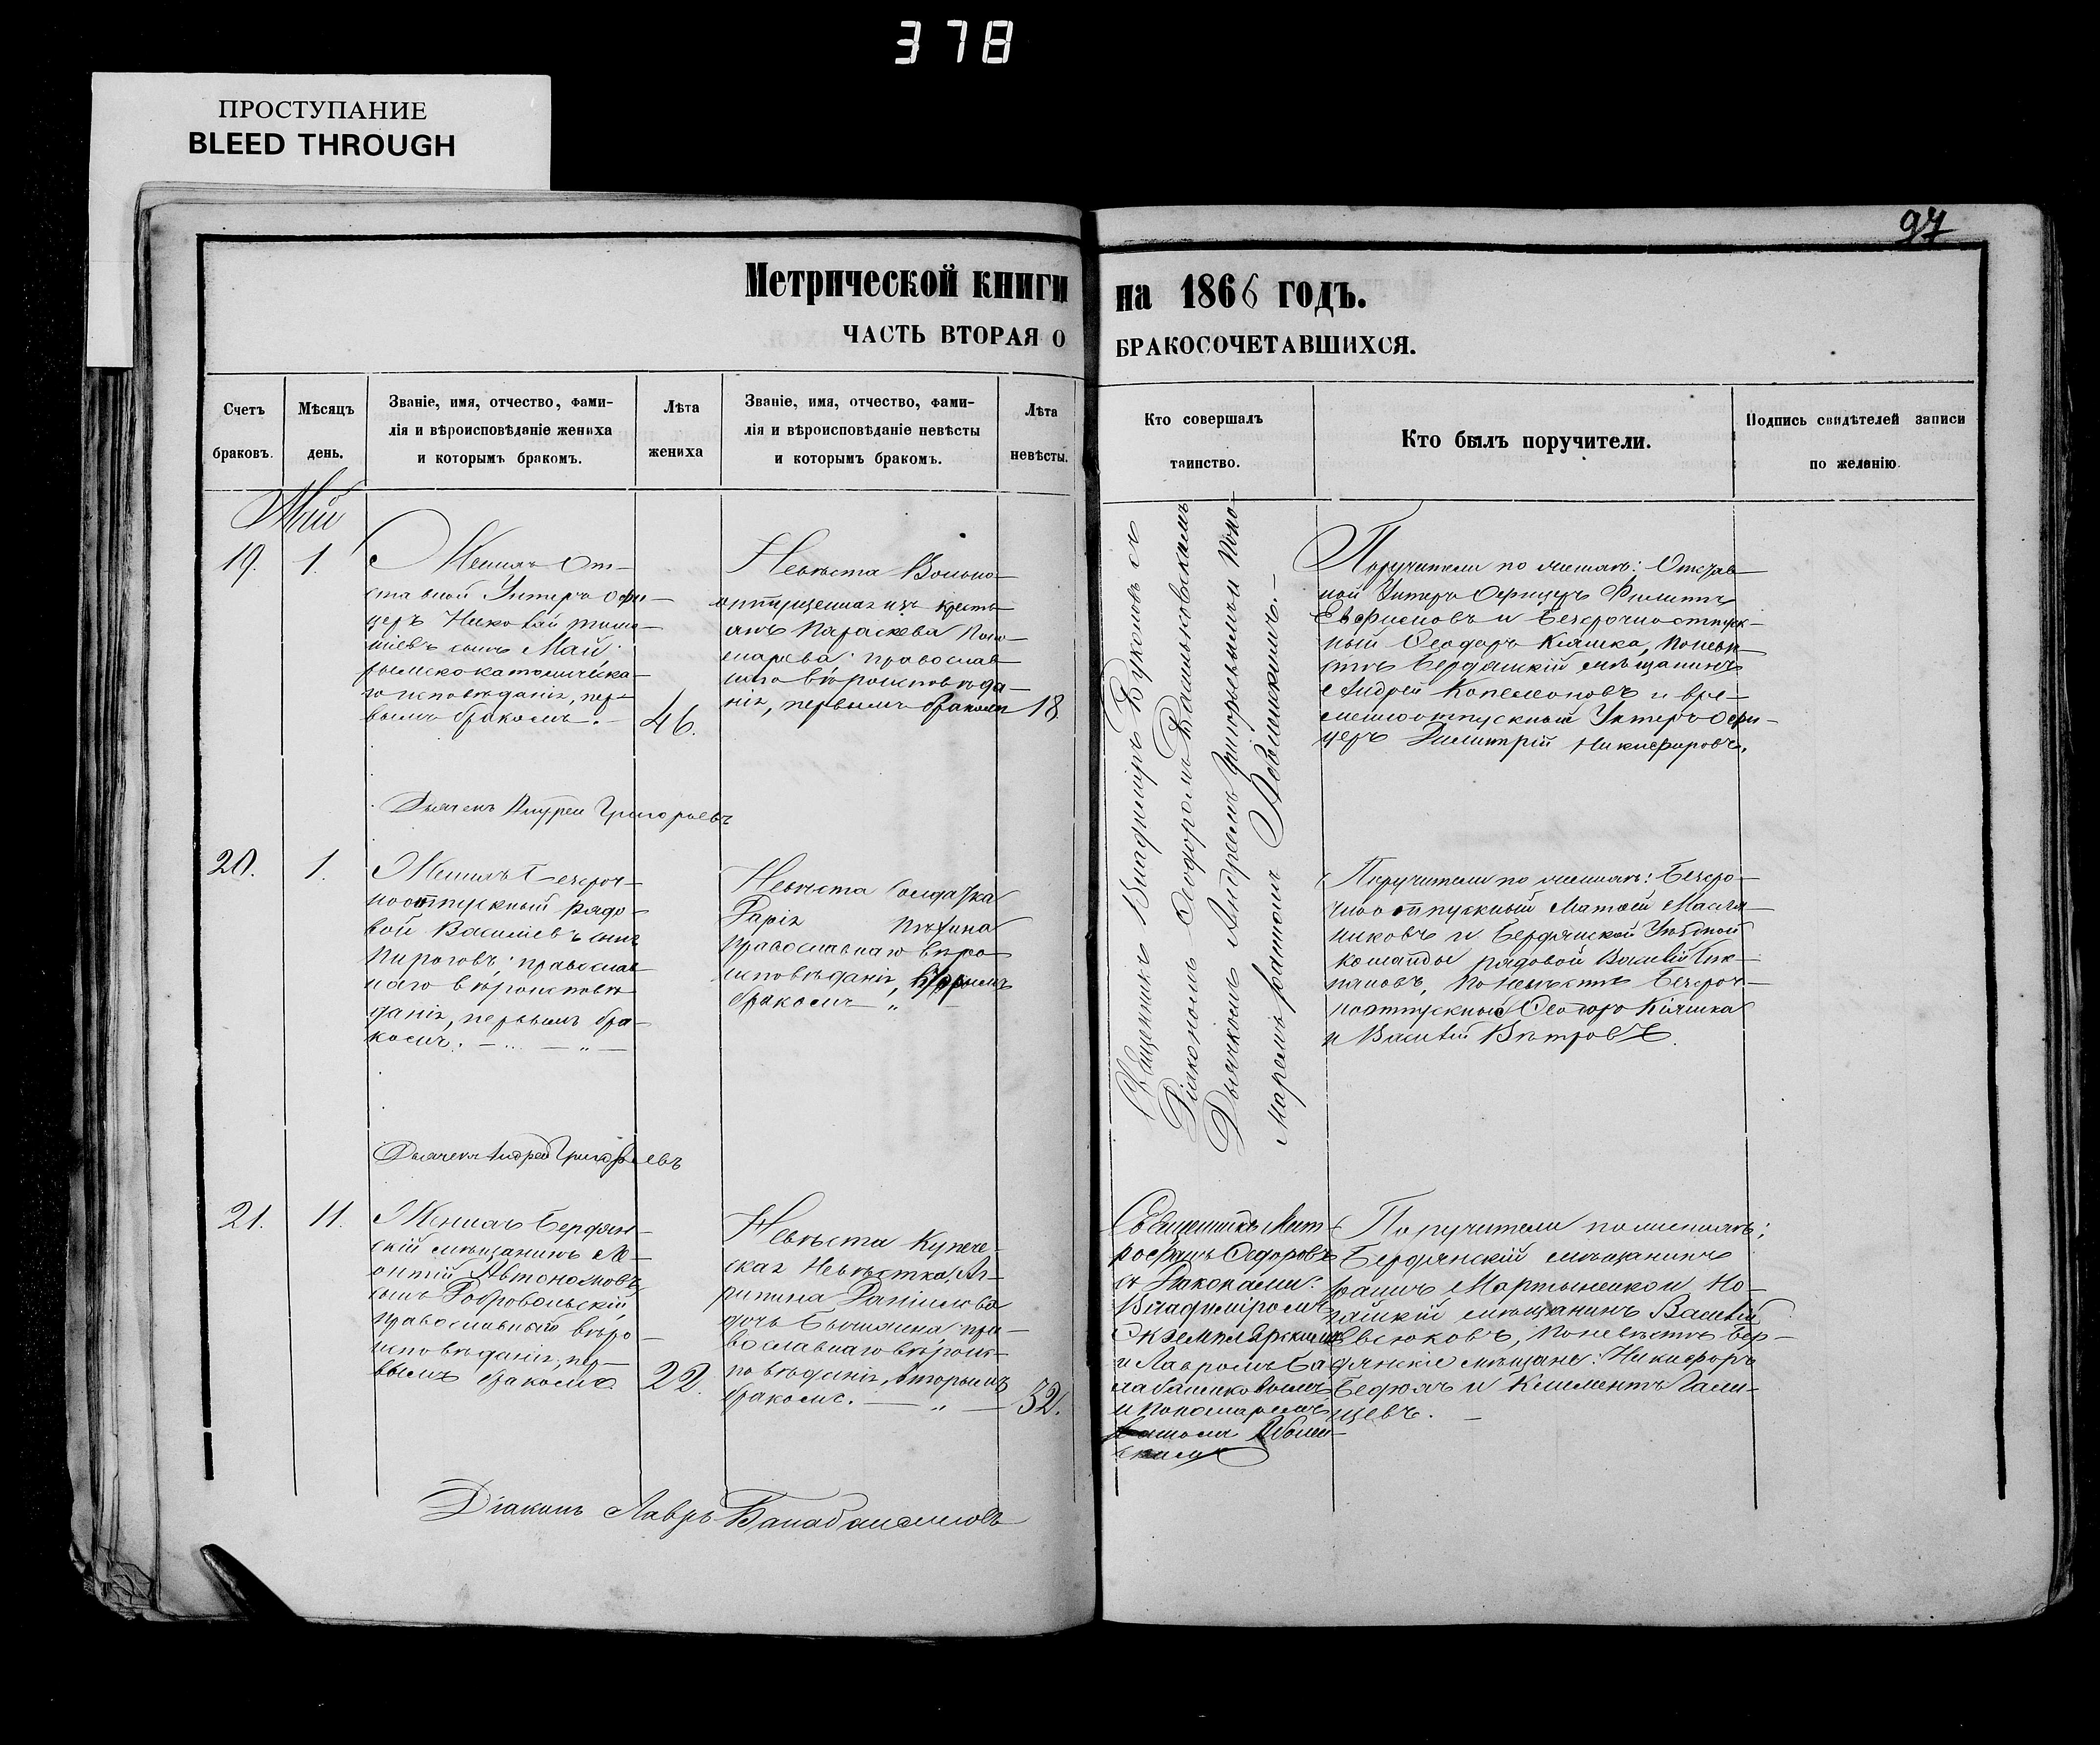 378
ПРОСТУПАНИЕ
BLEED THROUGH
97
Метрической книги на 1866 годъ.
ЧАСТЬ ВТОРАЯ О БРАКОСОЧЕТАВШИХСЯ.
Счетъ браковъ.
Мѣсяцъ день.
Званіе, имя, отчество, фами-
лія и вѣроисповѣданіе жениха
и которымъ бракомъ.
Лѣта жениха
Званіе, имя, отчество, фами-
лія и вѣроисповѣданіе невѣсты
и которымъ бракомъ.
Лѣта невѣсты.
Кто совершалъ
таинство.
Кто былъ поручители.
Подпись свидѣтелей записи
по желанію.
Май
19.
1.
Женихъ От-
ставной Унтеръ Офи-
церъ Николай
сынъ Май:
римскокатоличека-
го исповѣданія, пер-
вымъ бракомъ.
46.
Невѣста Вольно-
отпущенная изъ кресть-
янъ Параскева Поно-
марева: православ-
наго вѣроисповѣда-
нія, первымъ бракомъ
18
Священникъ Владиміръ Буковъ съ
Діакономъ Ѳеодоромъ Васильковскимъ
Дьячкомъ Андреемъ Григорьевымъ и Поно-
маремъ
Поручители по женихѣ: Отстав-
ной Унтеръ Офицеръ Филиппъ
Евфисновъ и Безсрочноотпуск-
ный Ѳеодоръ Кіяшка, по невѣ-
стѣ Бердянскій мѣщанинъ
Андрей и вре-
менноотпускный Унтеръ Офи-
церъ Димитрій Никифоровъ.
Дьячекъ Андрей Григорьевъ
20.
1.
Женихъ Безсроч-
ноотпускный Рядо-
вой Василіевъ сынъ
Пироговъ: православ-
наго вѣроисповѣ-
данія, первымъ бра-
комъ.
Невѣста Солдатка
Дарія
православнаго вѣро-
исповѣданія, вторымъ
бракомъ
Поручители по женихѣ: Безсро-
чноотпускный Матѳей Масля-
никовъ и Бердянской Уѣздной
команды рядовой Василій Сте-
пановъ, по невѣстѣ Безсроч-
ноотпускный Ѳеодоръ Кіяшка
и Василій Вѣтровъ.
Дьячекъ Андрей Григорьевъ
21.
11.
Женихъ Бердян-
скій мѣщанинъ Ле-
онтій Автономовъ
сынъ Добровольскій
православный вѣро-
исповѣданія, пер-
вымъ бракомъ
22.
Невѣста Купече-
ская Невѣстка, Аг-
рипина Даніилова
дочь пра-
вославнаго вѣроис-
повѣданія, вторымъ
бракомъ.
32.
Священникъ Мит-
рофанъ Ѳедоровъ
съ Діаконами:
Владиміромъ
Экземплярскимъ
и Лавромъ Ба-
лабаненковымъ
и Пономаремъ
Поручители по женихѣ:
Бердянскій мѣщанинъ
Иванъ Мартыненко и Но-
гайскій мѣщанинъ Василій
Евсюковъ, по невѣстѣ Бер-
дянскіе мѣщане: Никифоръ
и Климентъ Гали-
цевъ.
Діаконъ Лавръ